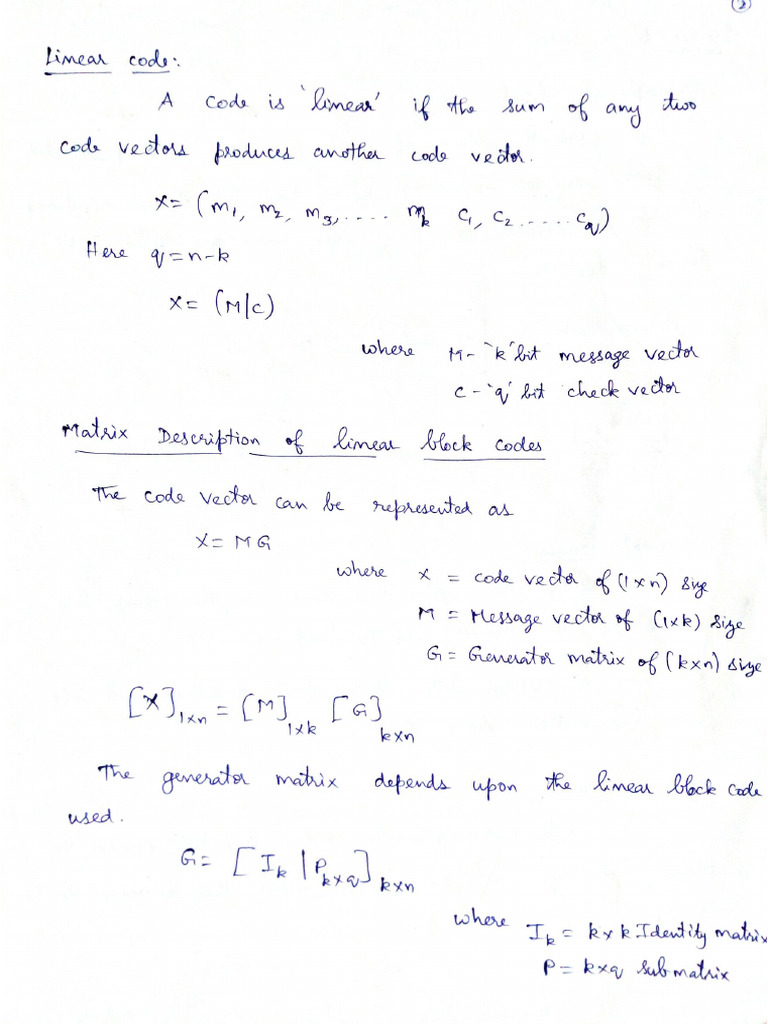 ②
Linear code:
A code is 'linear' if the sum of any two
code vectors produces another code vector.
X = (m₁, m₂, m₃, .... mₖ c₁, c₂ ..... c_q)
Here q = n-k
X = (M/C)
where M - 'k' bit message vector
C - 'q' bit check vector
Matrix Description of linear block codes
The code vector can be represented as
X = MG
where X = code vector of (1×n) size
M = Message vector of (1×k) size
G = Generator matrix of (k×n) size
[X]₁ₓₙ = [M]₁ₓₖ [G]ₖₓₙ
The generator matrix depends upon the linear block code
used.
G = [Iₖ | P_k×q]_k×n
where Iₖ = k×k Identity matrix
P = k×q submatrix